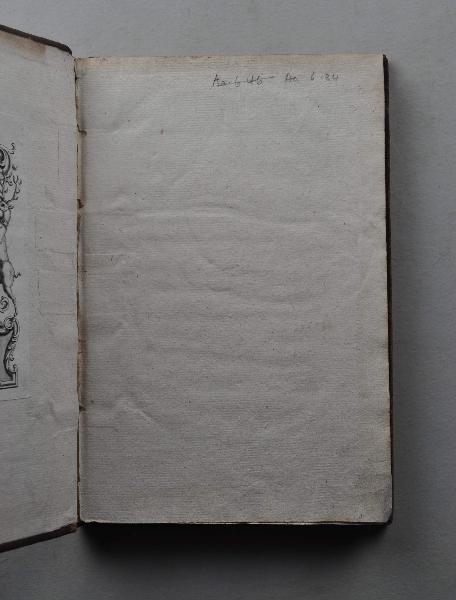 Aa·6·45 Aa 6·34